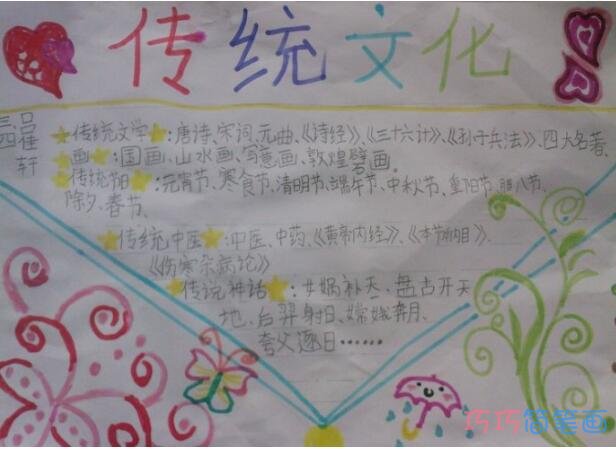 传统文化
三四
轩
传统文学:唐诗、宋词、元曲、《诗经》、《三十六计》、《孙子兵法》、四大名著、
画:国画、山水画、写意画、敦煌壁画。
传统节日:元宵节、寒食节、清明节、端午节、中秋节、重阳节、腊八节、
除夕、春节、
传统中医:中医、中药、《黄帝内经》、《本纲目》、
《伤寒杂病论》
传说神话:女娲补天、盘古开天
地、后羿射日、嫦娥奔月、
夸父逐日……
巧巧简笔画